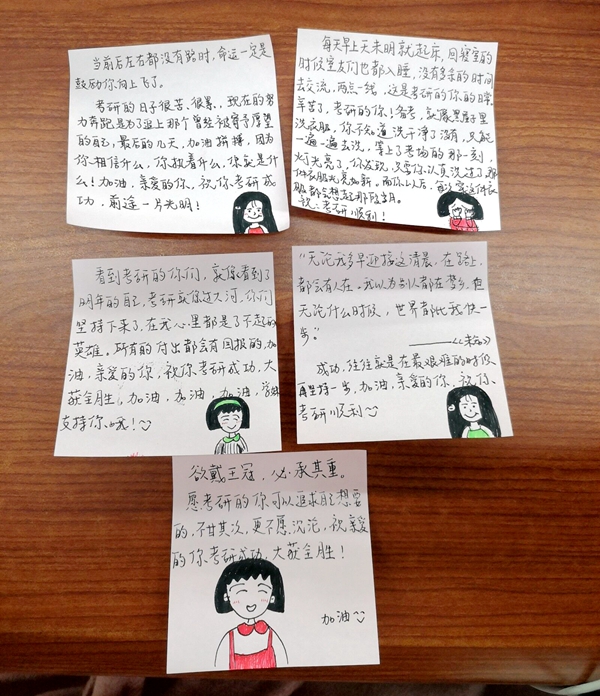 当前后左右都没有路时,命运一定是
鼓励你向上飞了。
考研的日子很苦、很累、现在的努
力奔跑是为了追上那个曾经被寄予厚望
的自己,最后的几天,加油拼搏,因为
你相信什么,你执着什么,你就是什
么!加油,亲爱的你,祝你考研成
功,前途一片光明!
每天早上天未明就起床,回寝室的
时候室友们也都入睡,没有多余的时间
去交流,两点一线,这是考研的你的日常。
辛苦了,考研的你!备考,就像黑屋子里
洗衣服,你不知道洗干净了没有,只能
一遍一遍去洗,等上了考场的那一刻,
灯光亮了,你发现,只要你认真洗过了,那
件衣服光亮如新,而你以后,每次穿这件衣
服都会想起那段岁月。
祝:考研顺利!
看到考研的你们,就像看到了
明年的自己,考研就像过大河,你们
坚持下来了,在我心里都是了不起的
英雄。所有的付出都会有回报的,加
油,亲爱的你,祝你考研成功,大
获全胜,加油,加油,加油,学妹
支持你哦!
"无论我多早迎接这清晨,在路上,
都会有人在。我以为别人都在梦乡,但
无论什么时候,世界都比我快一
步。"
成功,往往就是在最艰难的时候
再坚持一步,加油,亲爱的你,祝你
考研顺利
欲戴王冠,必承其重。
愿考研的你可以追求自己想要
的,不甘其次,更不愿沉沦,祝亲爱
的你考研成功,大获全胜!
加油